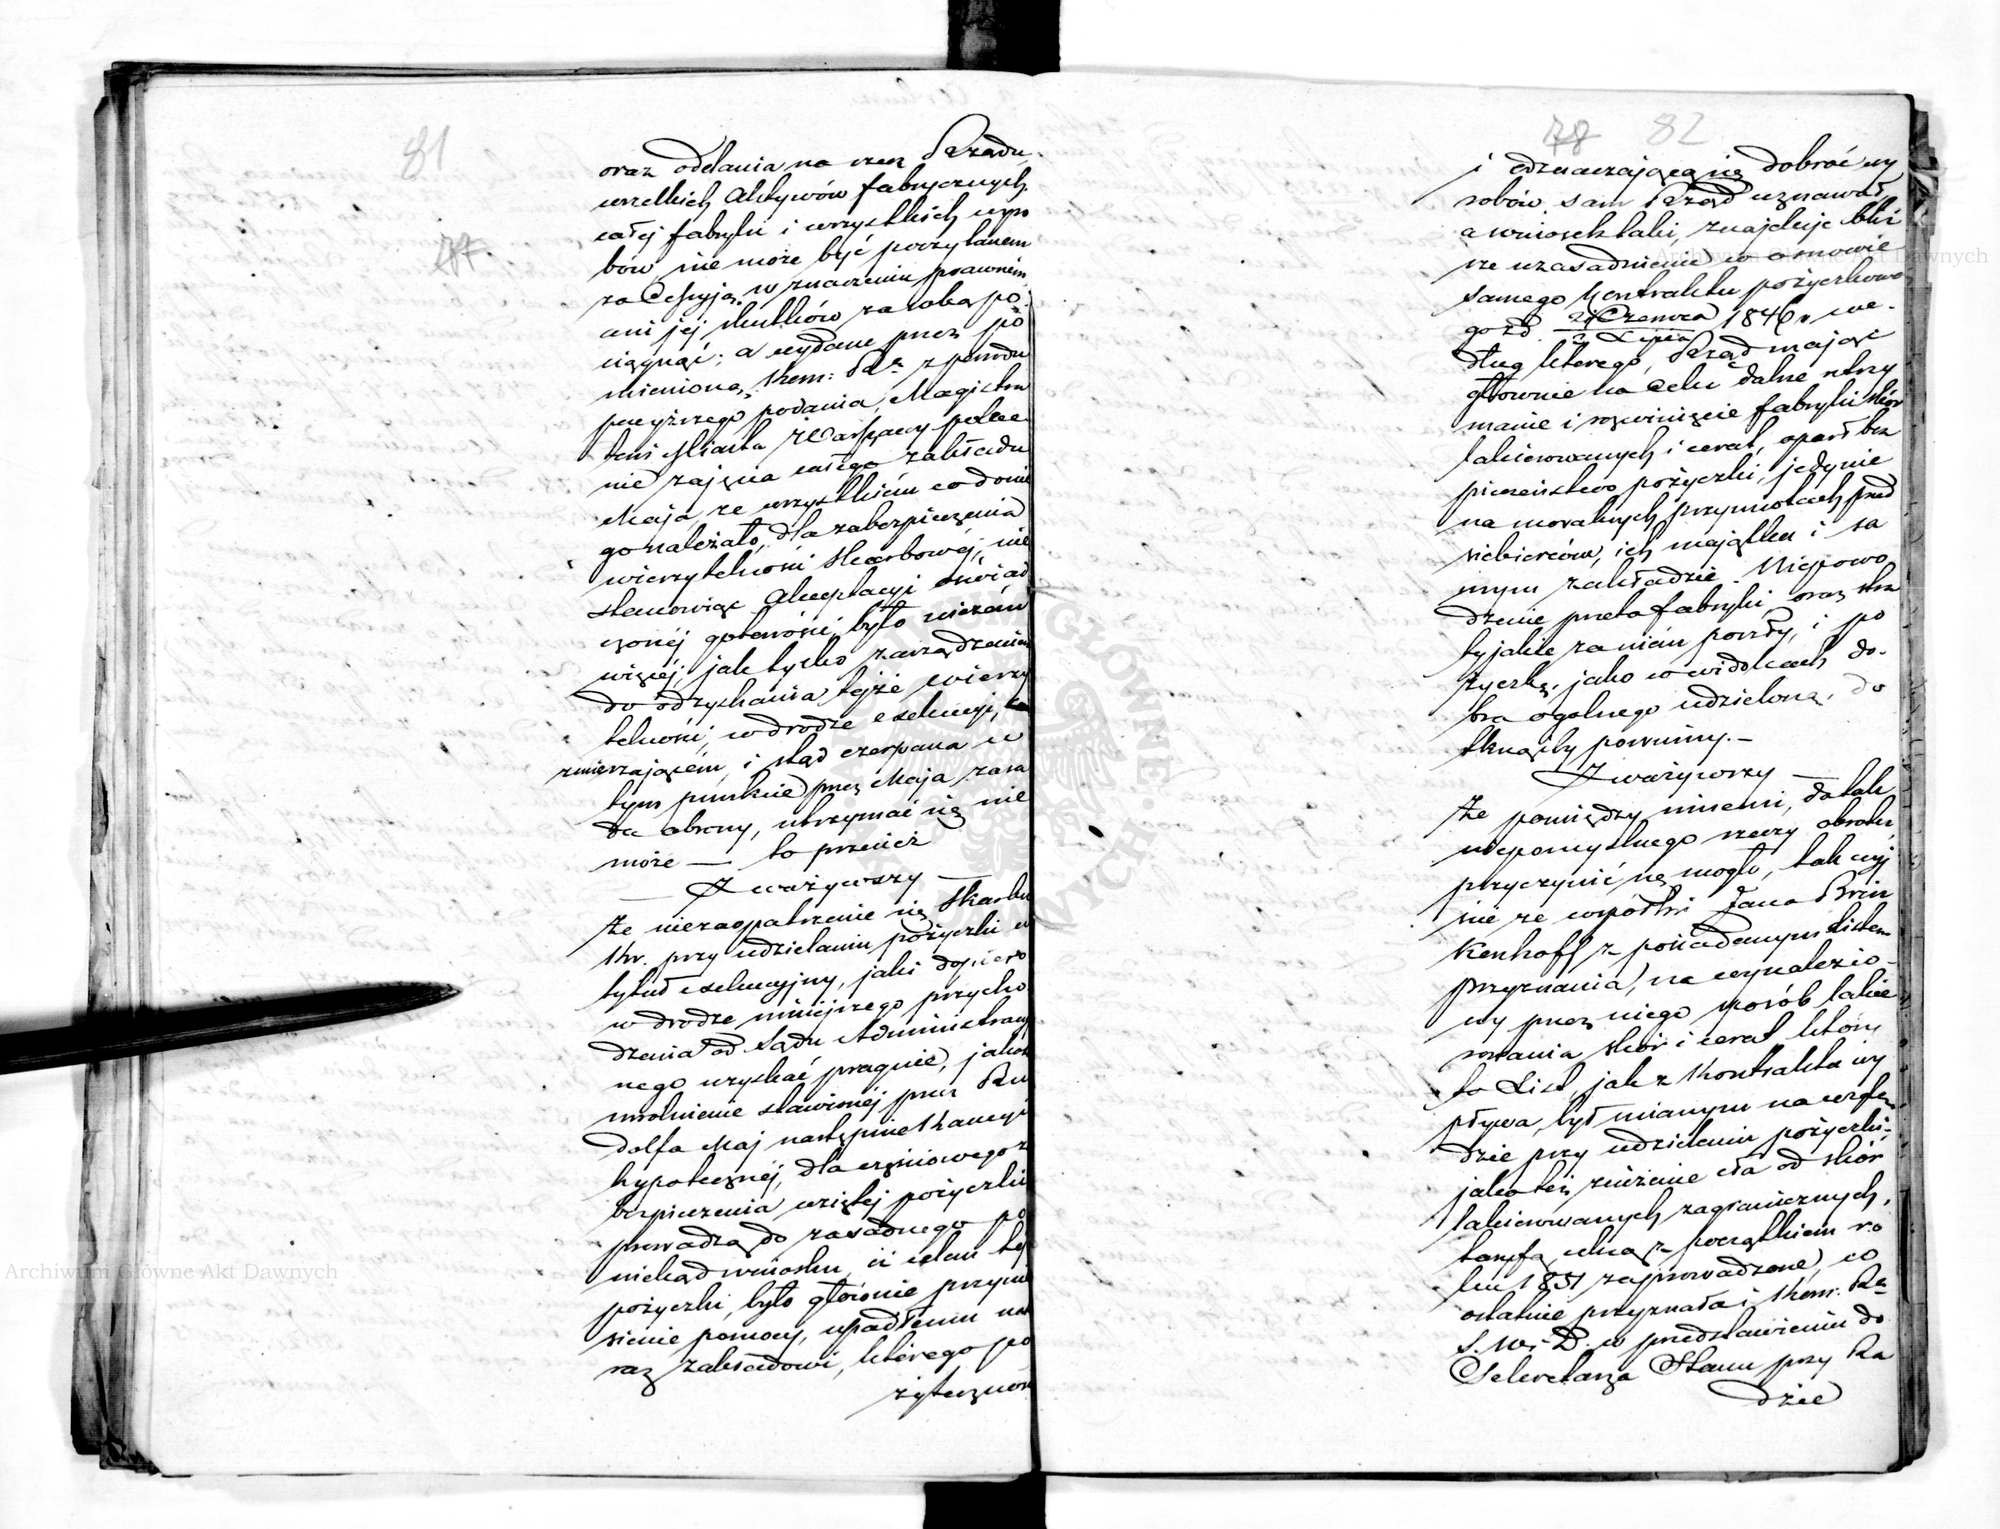 81
77
oraz oddania na rzecz Rządu
wszelkich Aktywów fabrycznych
całej fabryki i wszystkich wyro
bów, nie może być poczytanem
za Cessyją w znaczeniu prawném,
ani jej skutków za sobą po-
ciągnąć; a wydane przez po
mienioną Kom: Rz z powodu
powyższego podania, Magistra
towi Miasta Warszawy polece
nie zajęcia całego zakładu
Maja, ze wszystkiém co do nie
go należało, dla zabezpieczenia
wierzytelności Skarbowéj, nie
stanowiąc Akceptacyi oświad
czonéj gotowości, było niczém
więcéj, jak tylko zarządzeniem
do odzyskania tejże wierzy
telności, w drodze exekucyi,
zmierzającém, i stąd czerpana w
tym punkcie przez Maja zasa
da obrony, utrzymać się nie
może — to przecież
— Zważywszy —
że niezaopatrzenie się Skarbu
Kr. przy udzielaniu pożyczki w
tytuł exekucyjny, jaki dopiero
w drodze niniejszego przycho
dzenia od Sądu Administracyj
nego uzyskać pragnie, jakoż
uwolnienie stawionéj przez Ru
dolfa Maj następnie Kaucyi
hypotecznéj, dla częściowego z
bezpieczenia wziętéj pożyczki
prowadzą do zasadnego po
niekąd wniosku, iż celem téj
pożyczki, było głównie przynie
sienie pomocy, upadłemu na
raz zakładowi, którego po
żyteczność
78 82
i odznaczającą się dobroć wy
robów sam Rząd uznawał,
a wniosek taki, znajduje bliż
sze uzasadnienie w osnowie
samego Kontraktu pożyczkowe
go z d. 21 Czerwca / 3 Lipca 1846 r. we-
dług którego, Rząd mając
głównie na Celu dalsze utrzy
manie i rozwinięcie fabryki skór
lakierowanych i cerat, oparł bez
pieczeństwo pożyczki, jedynie
na moralnych przymiotach przed
siebierców, ich majątku i sa
mym zakładzie. Niepowo
dzenie przeto fabryki oraz stra
ty jakie za niém poszły, i po
życzkę, jako w widokach do-
bra ogólnego udzieloną, do
tknąćby powinny.—
Zważywszy —
że pomiędzy innemi, do tak
niepomyślnego rzeczy obrotu,
przyczynić się mogło, tak wyj
ście ze współki Jana Brin
kenhoff z posiadanym Listem
przyznania, na wynalezio-
ny przez niego sposób lakie
rowania skór i cerat który
to List, jak z Kontraktu wy
pływa, był mianym na wzglę
dzie przy udzieleniu pożyczki,
jako też zniżenie cła od skór
lakierowanych zagranicznych,
taryfą celną z początkiem ro
ku 1851 zaprowadzone, co
ostatnie przyznała i Kom: Rz
S. W. i D. w przedstawieniu do
Sekretarza Stanu przy Ra
dzie
Archiwum Główne Akt Dawnych
Archiwum Główne Akt Dawnych